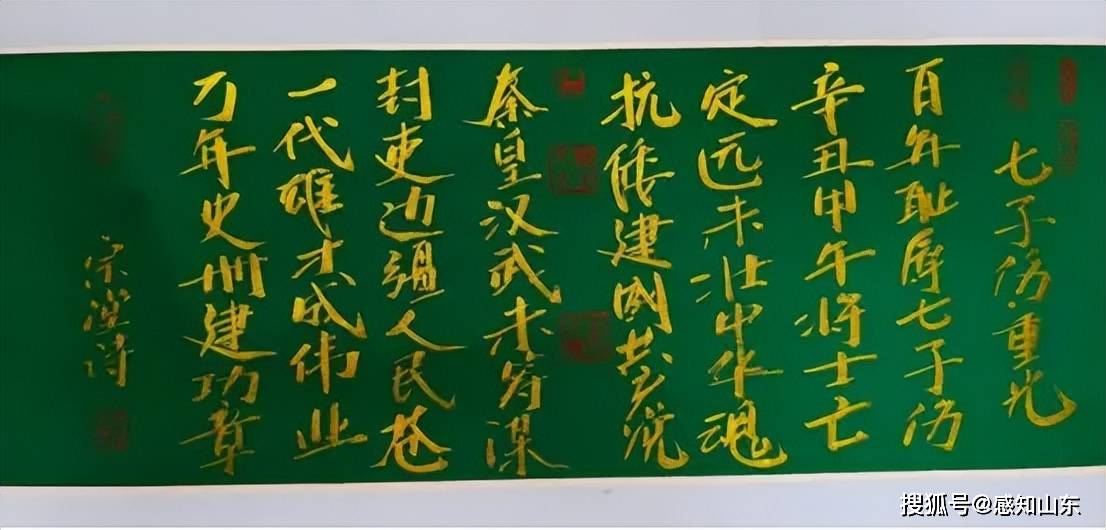 七子伤·重光
百年耻辱七子伤
辛丑甲午将士亡
定远未壮中华魂
抗倭建国共党流
秦皇汉武未曾谋
封吏边疆人民苍
一代雄才成伟业
万年史册建功章
宋 诗
搜狐号@感知山东